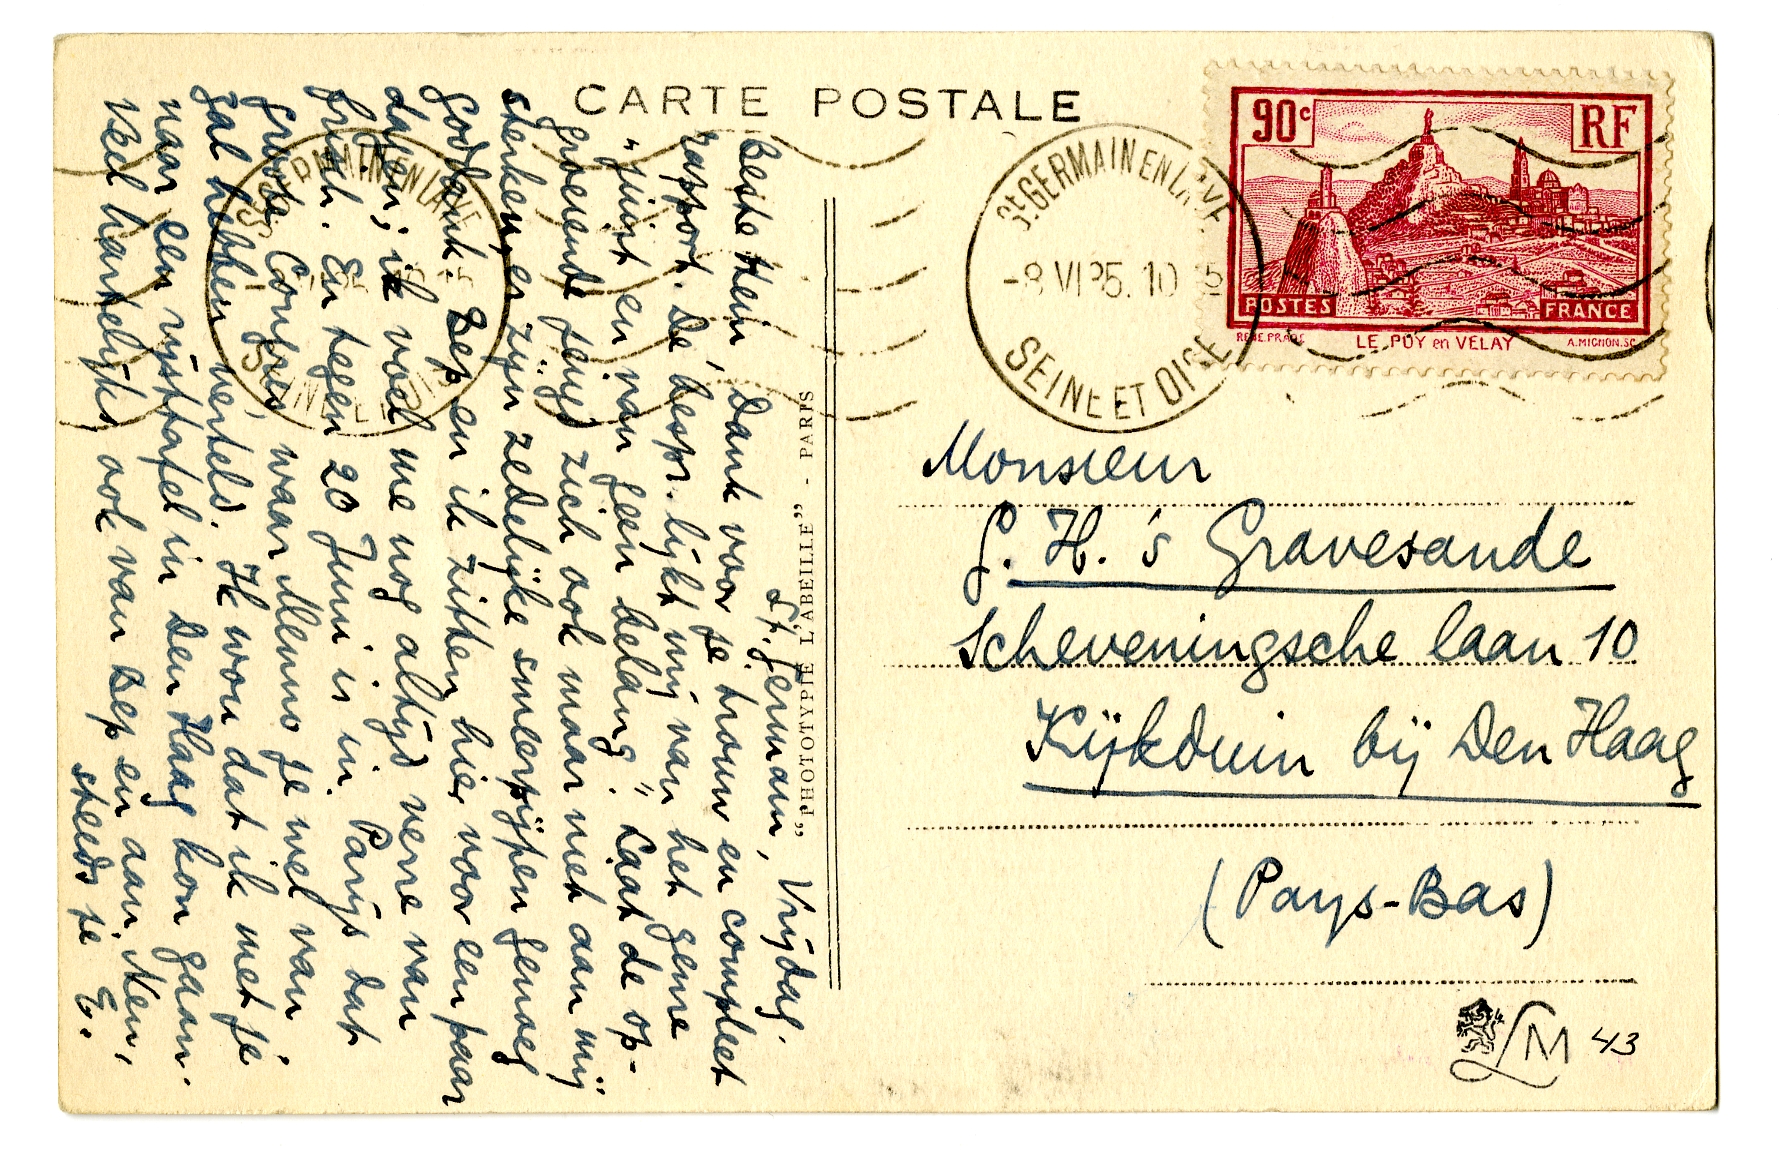 CARTE POSTALE
St. Germain, Vrijdag.
Beste Henri, Dank voor je trouw en compleet
rapport. De bespr. lijkt mij van het genre
"juist en van geen belang." Laat de op-
groeiende jeugd zich ook maar niet aan mij
sterken, er zijn zedelijke smeerpijpen genoeg
Goddank. Bep en ik zitten hier voor een paar
dagen; ik voel me nog altijd verre van
frisch. En tegen 20 Juni is in Parijs dat
groote Congres, waar Menno je wel van
zal hebben verteld. Ik wou dat ik met je
naar een rijsttafel in Den Haag kon gaan.
Veel hartelijks ook van Bep en aan Nen,
steeds je E.
"PHOTOTYPIE L'ABEILLE" - PARIS
ST GERMAIN EN LAYE
-8 VI 35. 10 15
SEINE ET OISE
ST GERMAIN EN LAYE
SEINE ET OISE
90c
RF
POSTES
FRANCE
RENE.PRADE
LE PUY en VELAY
A.MIGNON.SC
Monsieur
G. H. 's Gravesande
Scheveningsche laan 10
Kijkduin bij Den Haag
(Pays-Bas)
LM 43